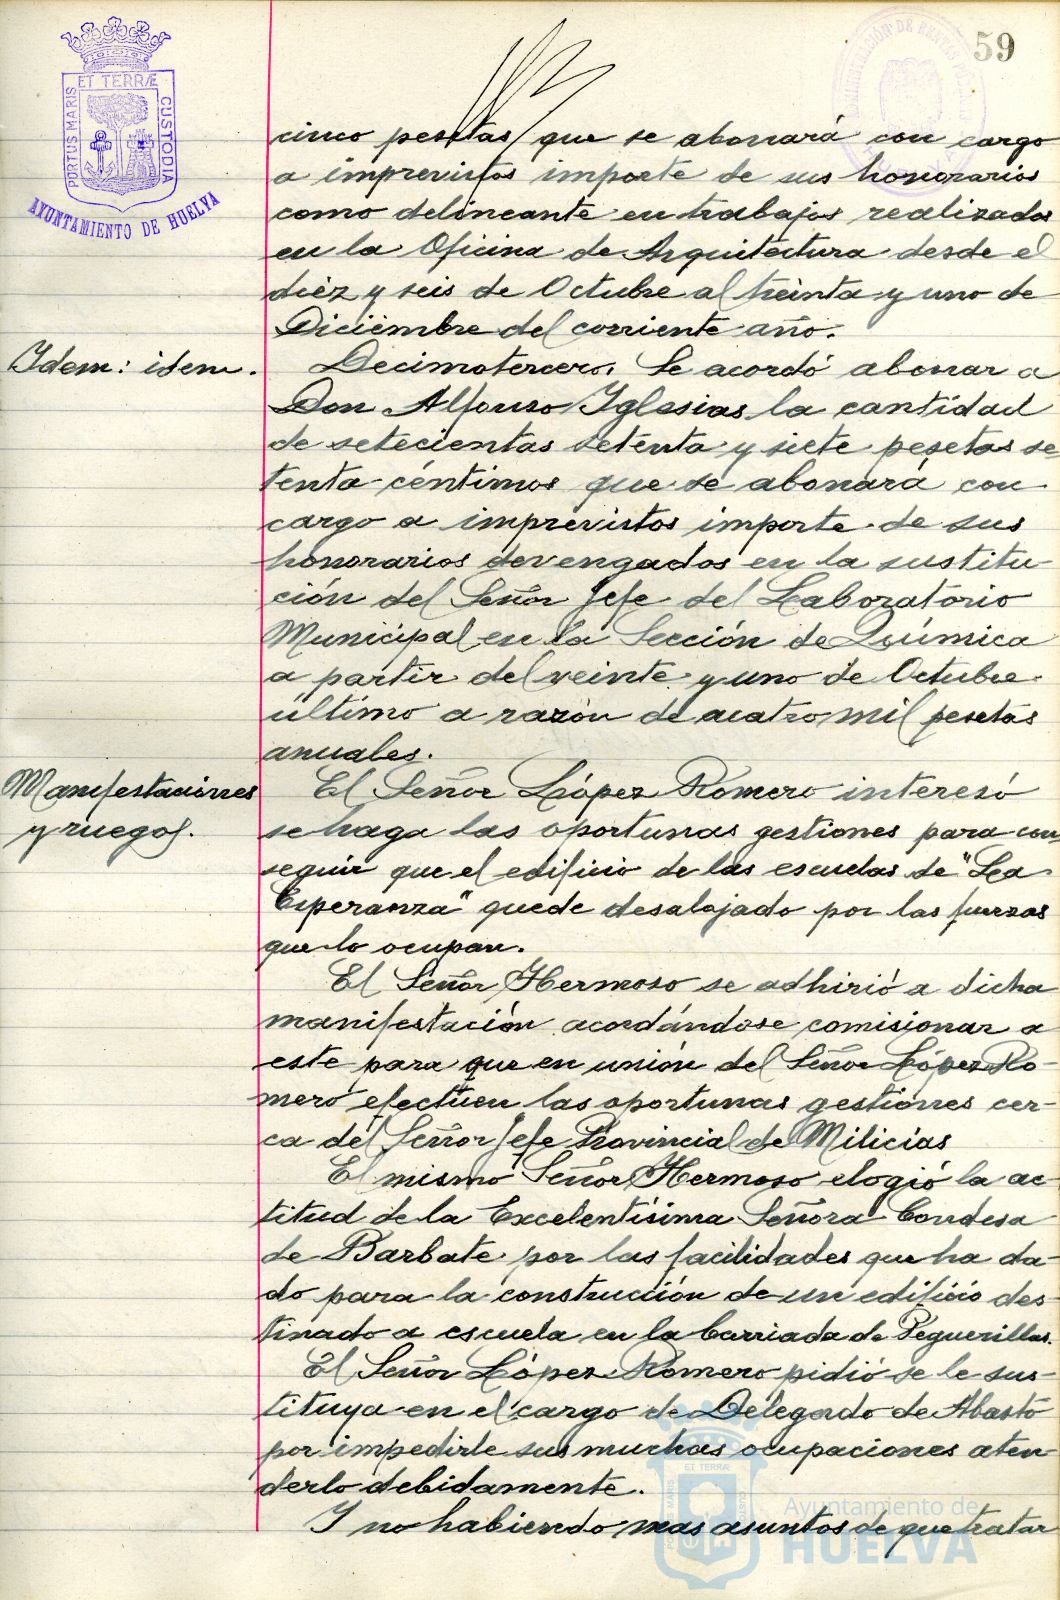 59
PORTUS MARIS ET TERRÆ CUSTODIA
AYUNTAMIENTO DE HUELVA
cinco pesetas que se abonará con cargo
a imprevistos importe de sus honorarios
como delineante en trabajos realizados
en la Oficina de Arquitectura desde el
diez y seis de Octubre al treinta y uno de
Diciembre del corriente año.
Idem: idem.
Decimotercero. Se acordó abonar a
Don Alfonso Iglesias la cantidad
de setecientas setenta y siete pesetas se-
tenta céntimos que se abonará con
cargo a imprevistos importe de sus
honorarios devengados en la sustitu-
ción del Señor Jefe del Laboratorio
Municipal en la Sección de Química
a partir del veinte y uno de Octubre
último a razón de cuatro mil pesetas
anuales.
Manifestaciones
y ruegos.
El Señor López Romero interesó
se haga las oportunas gestiones para con-
seguir que el edificio de las escuelas de "La
Esperanza" quede desalojado por las fuerzas
que lo ocupan.
El Señor Hermoso se adhirió a dicha
manifestación acordándose comisionar a
este para que en unión del Señor López Ro-
mero efectúen las oportunas gestiones cer-
ca del Señor Jefe Provincial de Milicias
El mismo Señor Hermoso elogió la ac-
titud de la Excelentísima Señora Condesa
de Barbate por las facilidades que ha da-
do para la construcción de un edificio des-
tinado a escuela en la barriada de Peguerillas.
El Señor López Romero pidió se le sus-
tituya en el cargo de Delegado de Abasto
por impedirle sus muchas ocupaciones aten-
derlo debidamente.
Y no habiendo mas asuntos de que tratar
Ayuntamiento de
HUELVA